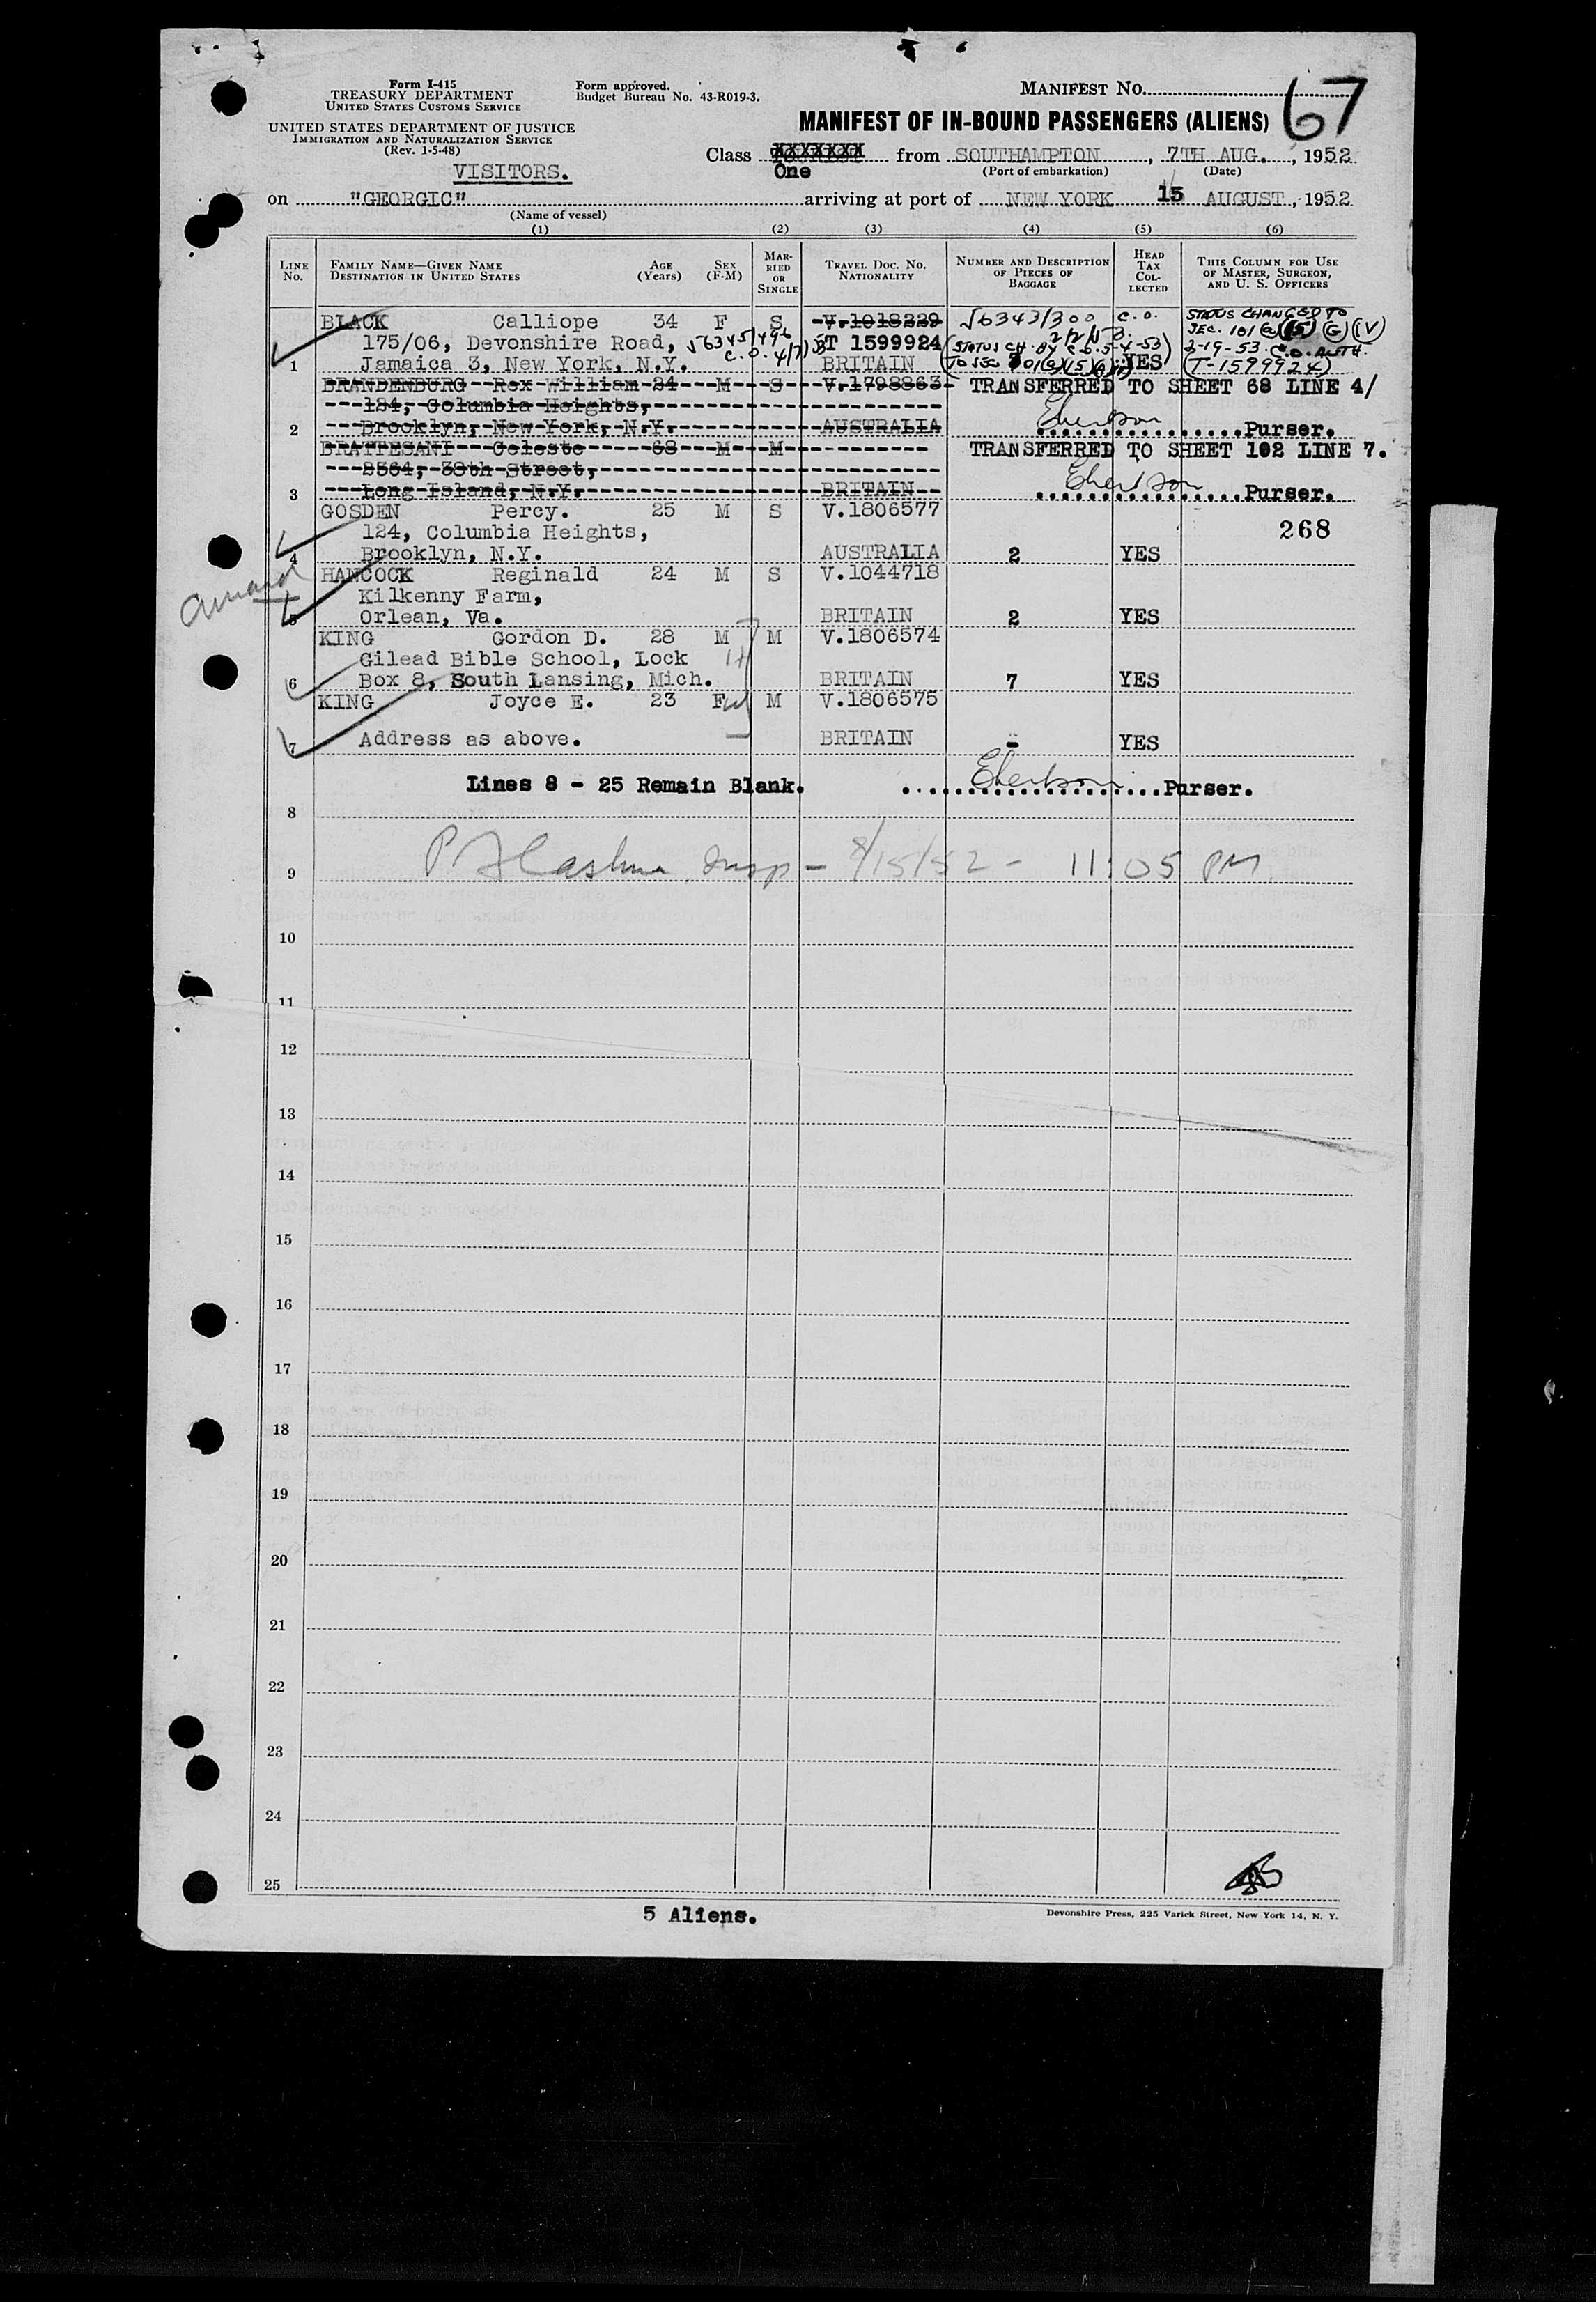 Form I-415
TREASURY DEPARTMENT
UNITED STATES CUSTOMS SERVICE
Form approved.
Budget Bureau No. 43-R019-3.
MANIFEST No. 67
UNITED STATES DEPARTMENT OF JUSTICE
IMMIGRATION AND NATURALIZATION SERVICE
(Rev. 1-5-48)
MANIFEST OF IN-BOUND PASSENGERS (ALIENS)
VISITORS.
Class XXXXXXX from SOUTHAMPTON, 7TH AUG., 1952
One (Port of embarkation) (Date)
on "GEORGIC" arriving at port of NEW YORK 15 AUGUST, 1952
(Name of vessel)
(1) (2) (3) (4) (5) (6)
LINE No. FAMILY NAME—GIVEN NAME DESTINATION IN UNITED STATES AGE (Years) SEX (F-M) MARRIED OR SINGLE TRAVEL DOC. No. NATIONALITY NUMBER AND DESCRIPTION OF PIECES OF BAGGAGE HEAD TAX COLLECTED THIS COLUMN FOR USE OF MASTER, SURGEON, AND U. S. OFFICERS
BLACK Calliope 34 F S V.1018229 √6343/300 C.O. STATUS CHANGED TO SEC. 101 (a)(15)(G)(IV)
175/06, Devonshire Road, √6345/496 T 1599924 (STATUS CH. BY C.O. 5-4-53 2-19-53 C.O. AUTH.
1 Jamaica 3, New York, N.Y. C.O. BRITAIN TO SEC YES (T-1599924)
BRANDENBURG Rex William 24 M S V.1798863 TRANSFERRED TO SHEET 68 LINE 4/
124, Columbia Heights,
2 Brooklyn, New York, N.Y. AUSTRALIA Purser.
BRATTESANI Celeste 68 M M TRANSFERRED TO SHEET 102 LINE 7.
38th Street,
3 Long Island, N.Y. BRITAIN Purser.
GOSDEN Percy. 25 M S V.1806577
124, Columbia Heights, 268
4 Brooklyn, N.Y. AUSTRALIA 2 YES
HANCOCK Reginald 24 M S V.1044718
Kilkenny Farm,
5 Orlean, Va. BRITAIN 2 YES
KING Gordon D. 28 M M V.1806574
Gilead Bible School, Lock H
6 Box 8, South Lansing, Mich. BRITAIN 7 YES
KING Joyce E. 23 F W M V.1806575
7 Address as above. BRITAIN - YES
Lines 8 - 25 Remain Blank. Purser.
8
9 Insp - 8/15/52 - 11:05 PM
10
11
12
13
14
15
16
17
18
19
20
21
22
23
24
25
5 Aliens.
Devonshire Press, 225 Varick Street, New York 14, N. Y.